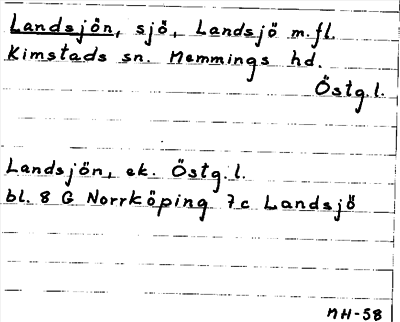 Landsjön, sjö, Landsjö m.fl.
Kimstads sn. Memmings hd.
Östg.l.
Landsjön, ek. Östg.l.
bl. 8 G Norrköping 7c Landsjö
NH-58